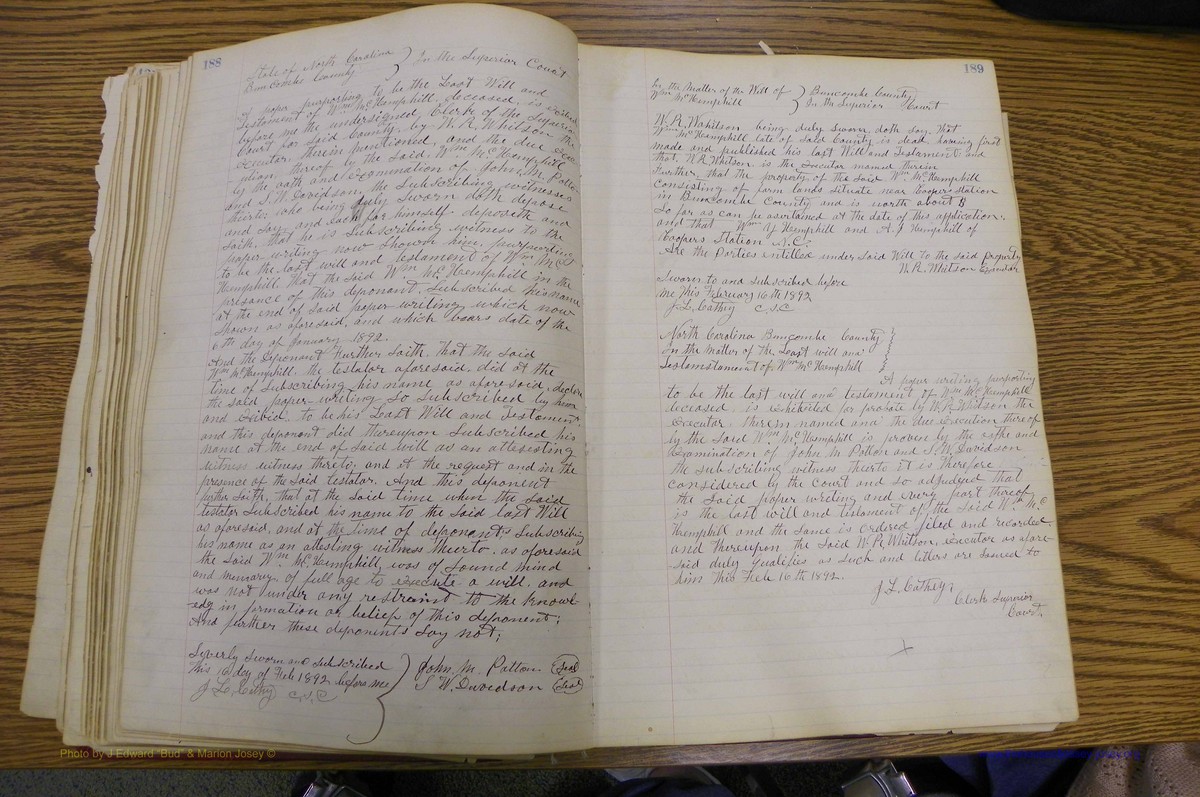 188
State of North Carolina ) In the Superior Court
Buncombe County )
A paper purporting to be the Last Will and
Testament of Wm McHemphill, deceased, is exibited
before me the undersigned, Clerk of the Superior
Court for said County, by W. R. Whitson the
Executor therein mentioned, and the due exec-
ution thereof by the said Wm McHemphill
by the oath and examination of John M. Patton
and S. W. Davidson, the Subscribing witnesses
thereto who being duly sworn doth depose
and say, and each for himself deposeth and
saith, that he is subscribing witness to the
paper writing now shown him, purporting
to be the last will and testament of Wm Mc
Hemphill, that the said Wm McHemphill in the
presance of this deponant, subscribed his name
at the end of said paper writing which now
shown as aforesaid, and which bears date of the
6th day of January 1892.
And the Deponant further saith, that the said
Wm McHemphill, the testator aforesaid, did at the
time of Subscribing his name as aforesaid, declare
the said paper-writing so Subscribed by him
and exibid. to be his Last Will and Testament,
and this deponant did thereupon subscribed his
name at the end of said will as an attesting
witness witness thereto, and at the request and in the
presence of the said testator. And this deponent
further saith, that at the said time when the said
testator subscribed his name to the said last Will
as aforesaid, and at the time of deponants subscribing
his name as an attesting witness thereto, as aforesaid
the said Wm McHemphill was of sound mind
and memory, of full age to execute a will, and
was not under any restraint to the knowl-
edg in formation or belief of this deponent;
And further these deponents say not;
Severly sworn and subscribed ) John M. Patton (Seal)
this 16 day of Feb 1892 before me ) S W. Davidson (Seal)
J. L. Cathy C.S.C.
189
In the Matter of the Will of ) Buncombe County
Wm McHemphill ) In the Superior Court
W. R. Wahitson being duly sworn, doth say, that
Wm McHemphill late of said County is dead, having first
made and published his last Will and Testament and
that, W.R. Whitson is the Executor named therein
Further, that the property of the said Wm McHemphill
consisting of farm lands situate near Coopers Station
in Buncombe County and is worth about $
so far as can be asertained at the date of this application.
and that Wm Y Hemphill and A. J Hemphill of
Coopers Station N.C.
Are the Parties entitled under said Will to the said property
W. R. Whitson Executor
Sworn to and subscribed before
me this February 16th 1892
J. L. Cathey C.S.C
North Carolina Buncombe County
In the Matter of the Last will and
Testamstament of Wm McHemphill
A paper writing purporting
to be the last will and testament of Wm McHemphill
deceased is exhibited for probate by W. R. Whitson the
Executor therein named and the due execution thereof
by the said Wm McHemphill is proven by the oathe and
examination of John M Patton and S. W. Davidson
the subscribing witness therto it is therefore
considered by the Court and so adjudged that
the said paper writing and every part thereof
is the last will and testament of the said Wm Mc
Hemphill and the same is ordered filed and recorded
and thereupon the said W. R. Whitson, executor as afore-
said duly qualifies as such and letters are issued to
him this Feb 16th 1892.
J L Cathey,
Clerk Superior
Court.
Photo by J Edward "Bud" & Marion Josey ©